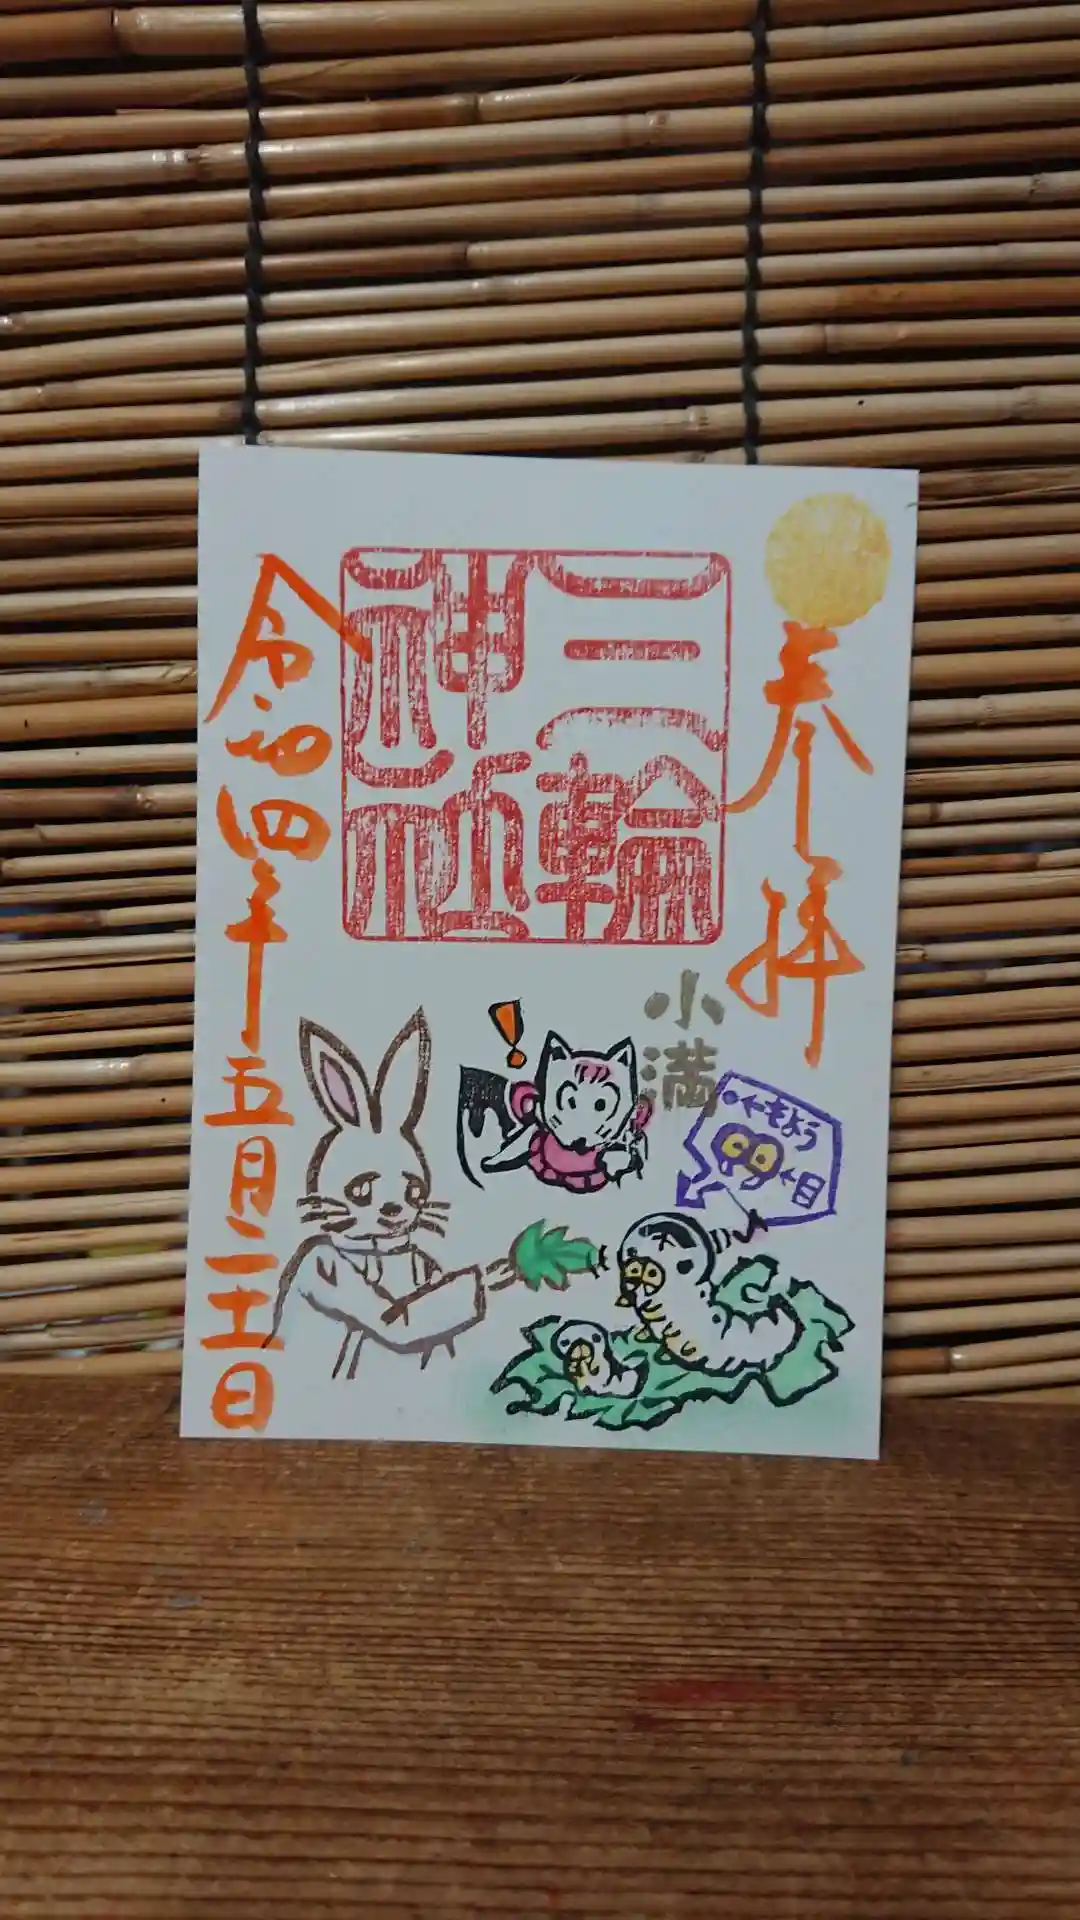 奉拝
三輪
神社
小満
←もよう
←目
令和四年五月二十一日